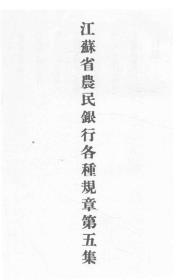 江蘇省農民銀行各種規章第五集